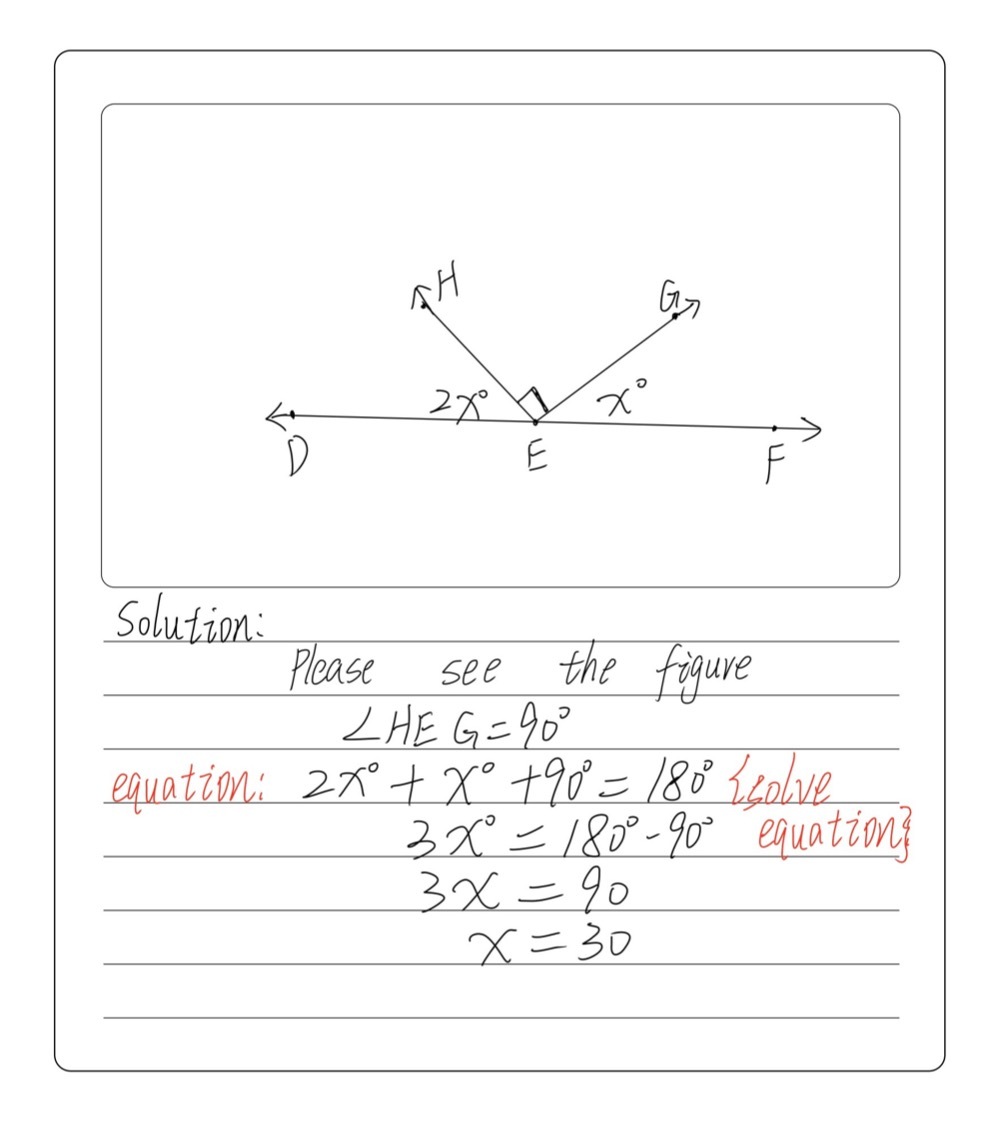 H
G
2x°
x°
D
E
F
Solution:
Please see the figure
∠HEG=90°
equation: 2x° + x° +90° = 180° {solve
3x° = 180°-90° equation}
3x = 90
x = 30